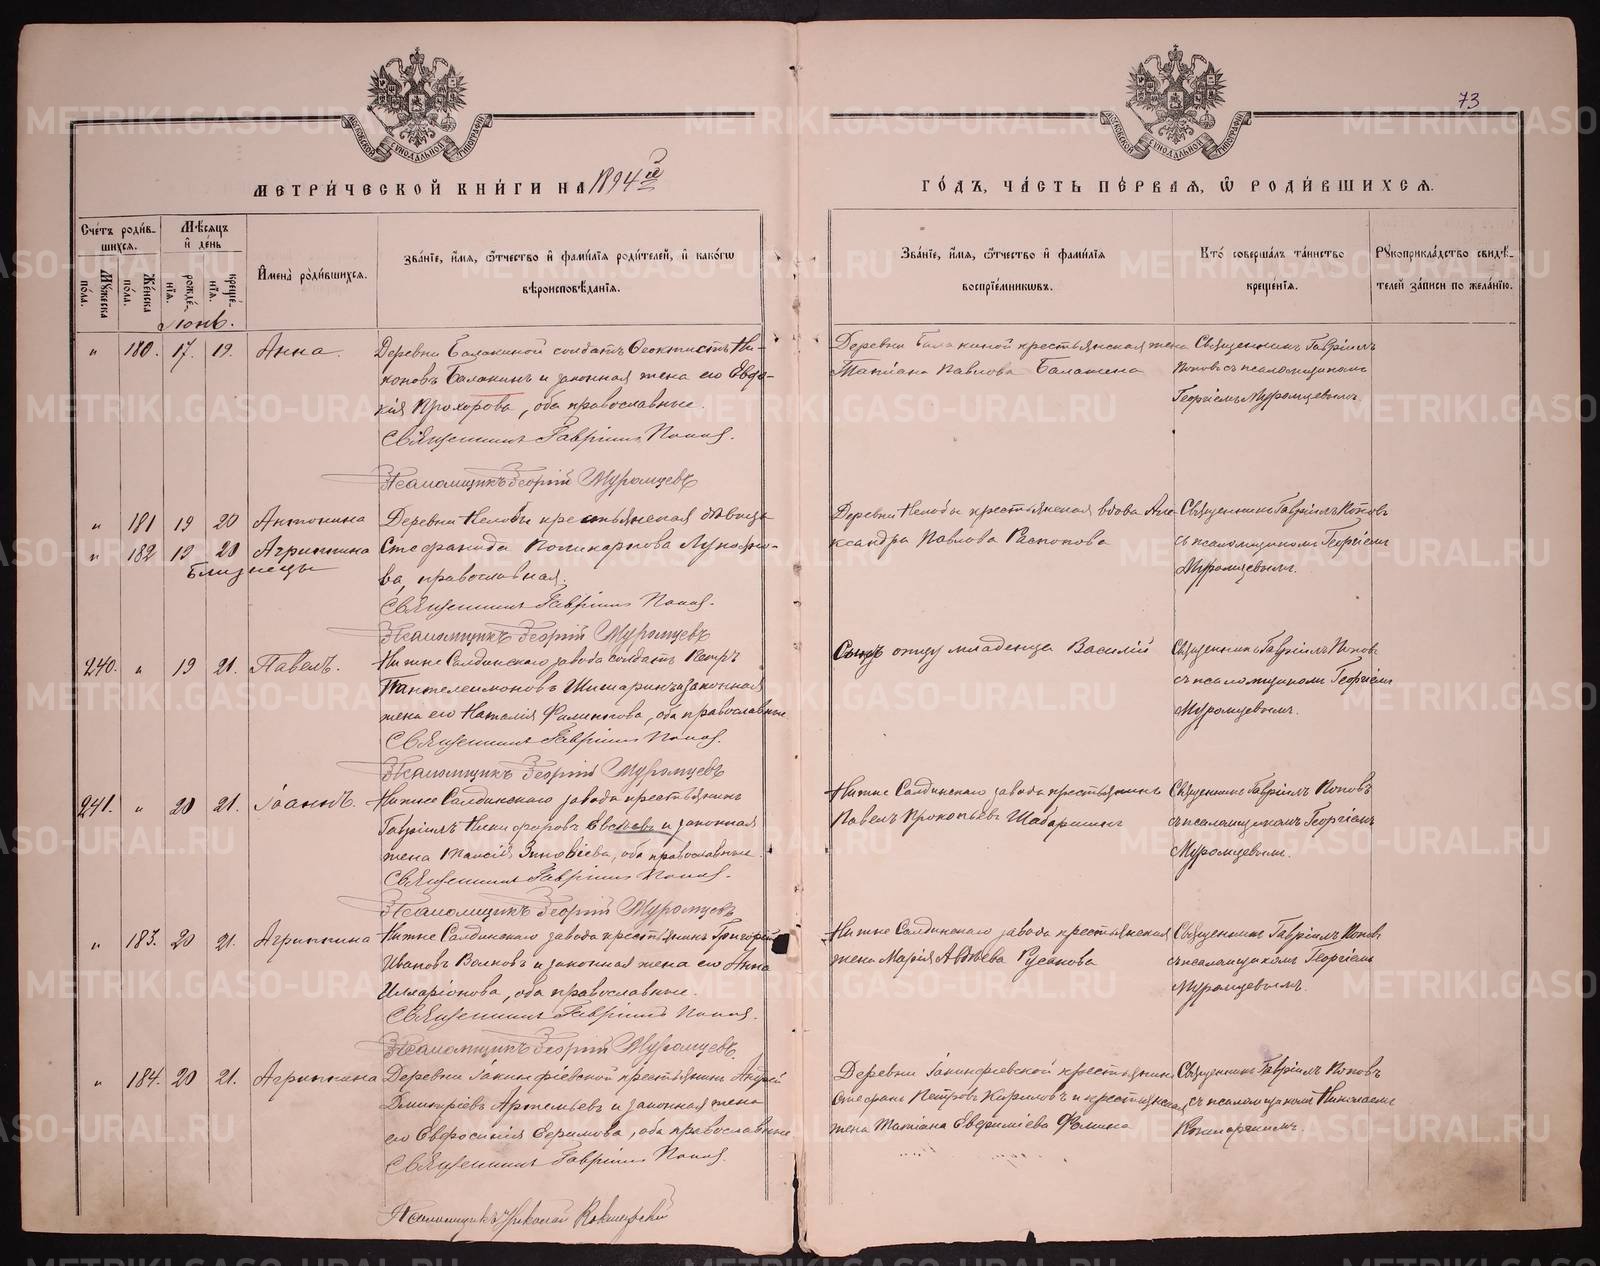 73
МОСКОВСКОЙ СѴНОДАЛЬНОЙ ТИПОГРАФІИ
МОСКОВСКОЙ СѴНОДАЛЬНОЙ ТИПОГРАФІИ
МЕТРИ́ЧЕСКОЙ КНИ́ГИ НА 1894 й
ГО́ДЪ, ЧА́СТЬ ПЕ́РВАЯ, Ѿ РОДИ́ВШИХСЯ.
Сче́тъ роди́в-шихся.
Мꙋжеска по́ла.
Же́нска по́ла.
Мѣ́сяцъ и́ де́нь
рожде́нія.
креще́нія.
И҆мена̀ роди́вшихся.
Зва́ніе, и҆́мя, ѻ҆́тчество и҆ фами́лія роди́телей, и҆ како́гѡ вѣроисповѣ́данія.
Зва́ніе, и҆́мя, ѻ҆́тчество и҆ фами́лія воспріе́мникѡвъ.
Кто̀ соверша́лъ та́инство креще́нія.
Рꙋкоприкла́дство свидѣ́телей за́писи по жела́нію.
Іюнь.
" 180. 17. 19. Анна.
Деревни Балакиной солдатъ Феоктистъ Ни-
коновъ Балакинъ и законная жена его Евдо-
кія Прохорова, оба православные.
Священникъ Гавріилъ Поповъ.
Псаломщикъ Георгій Муромцевъ
Деревни Балакиной крестьянская жена
Татіана Павлова Балакина
Священникъ Гавріилъ
Поповъ съ псаломщикомъ
Георгіемъ Муромцевымъ.
" 181 19 20 Антонина
" 182 19 20 Агриппина
Близнецы
Деревни Нелобы крестьянская дѣвица
Стефанида Поликарпова
ва, православная.
Священникъ Гавріилъ Поповъ.
Псаломщикъ Георгій Муромцевъ
Деревни Нелобы крестьянская вдова Але-
ксандра Павлова Распопова
Священникъ Гавріилъ Поповъ
съ псаломщикомъ Георгіемъ
Муромцевымъ.
240. " 19 21. Павелъ.
Нижне Салдинскаго завода солдатъ Петръ
Пантелеимоновъ Шишаринъ и законная
жена его Наталія Филиппова, оба православные
Священникъ Гавріилъ Поповъ.
Псаломщикъ Георгій Муромцевъ
Сынъ отцу младенца Василій
Священникъ Гавріилъ Поповъ
съ псаломщикомъ Георгіемъ
Муромцевымъ.
241. " 20 21. Іоаннъ.
Нижне Салдинскаго завода крестьянинъ
Гавріилъ Никифоровъ Евсѣевъ и законная
жена Таисія Зиновіева, оба православные.
Священникъ Гавріилъ Поповъ.
Псаломщикъ Георгій Муромцевъ
Нижне Салдинскаго завода крестьянинъ
Павелъ Прокопьевъ Шабаршинъ
Священникъ Гавріилъ Поповъ
съ псаломщикомъ Георгіемъ
Муромцевымъ.
" 183. 20 21. Агриппина
Нижне Салдинскаго завода крестьянинъ Григорій
Ивановъ Волковъ и законная жена его Анна
Илларіонова, оба православные.
Священникъ Гавріилъ Поповъ.
Псаломщикъ Георгій Муромцевъ.
Нижне Салдинскаго завода крестьянская
жена Марія Авдѣева Русакова
Священникъ Гавріилъ Поповъ
съ псаломщикомъ Георгіемъ
Муромцевымъ.
" 184. 20 21. Агриппина
Деревни Іакинфіевской крестьянинъ Андрей
Димитріевъ Артемьевъ и законная жена
его Евфросинія Ефимова, оба православные
Священникъ Гавріилъ Поповъ.
Псаломщикъ Николай
Деревни Іакинфіевской крестьянинъ
Стефанъ Петровъ Кириловъ и крестьянская
жена Татіана Евфиміева Фомина
Священникъ Гавріилъ Поповъ
съ псаломщикомъ Николаемъ
METRIKI.GASO-URAL.RU